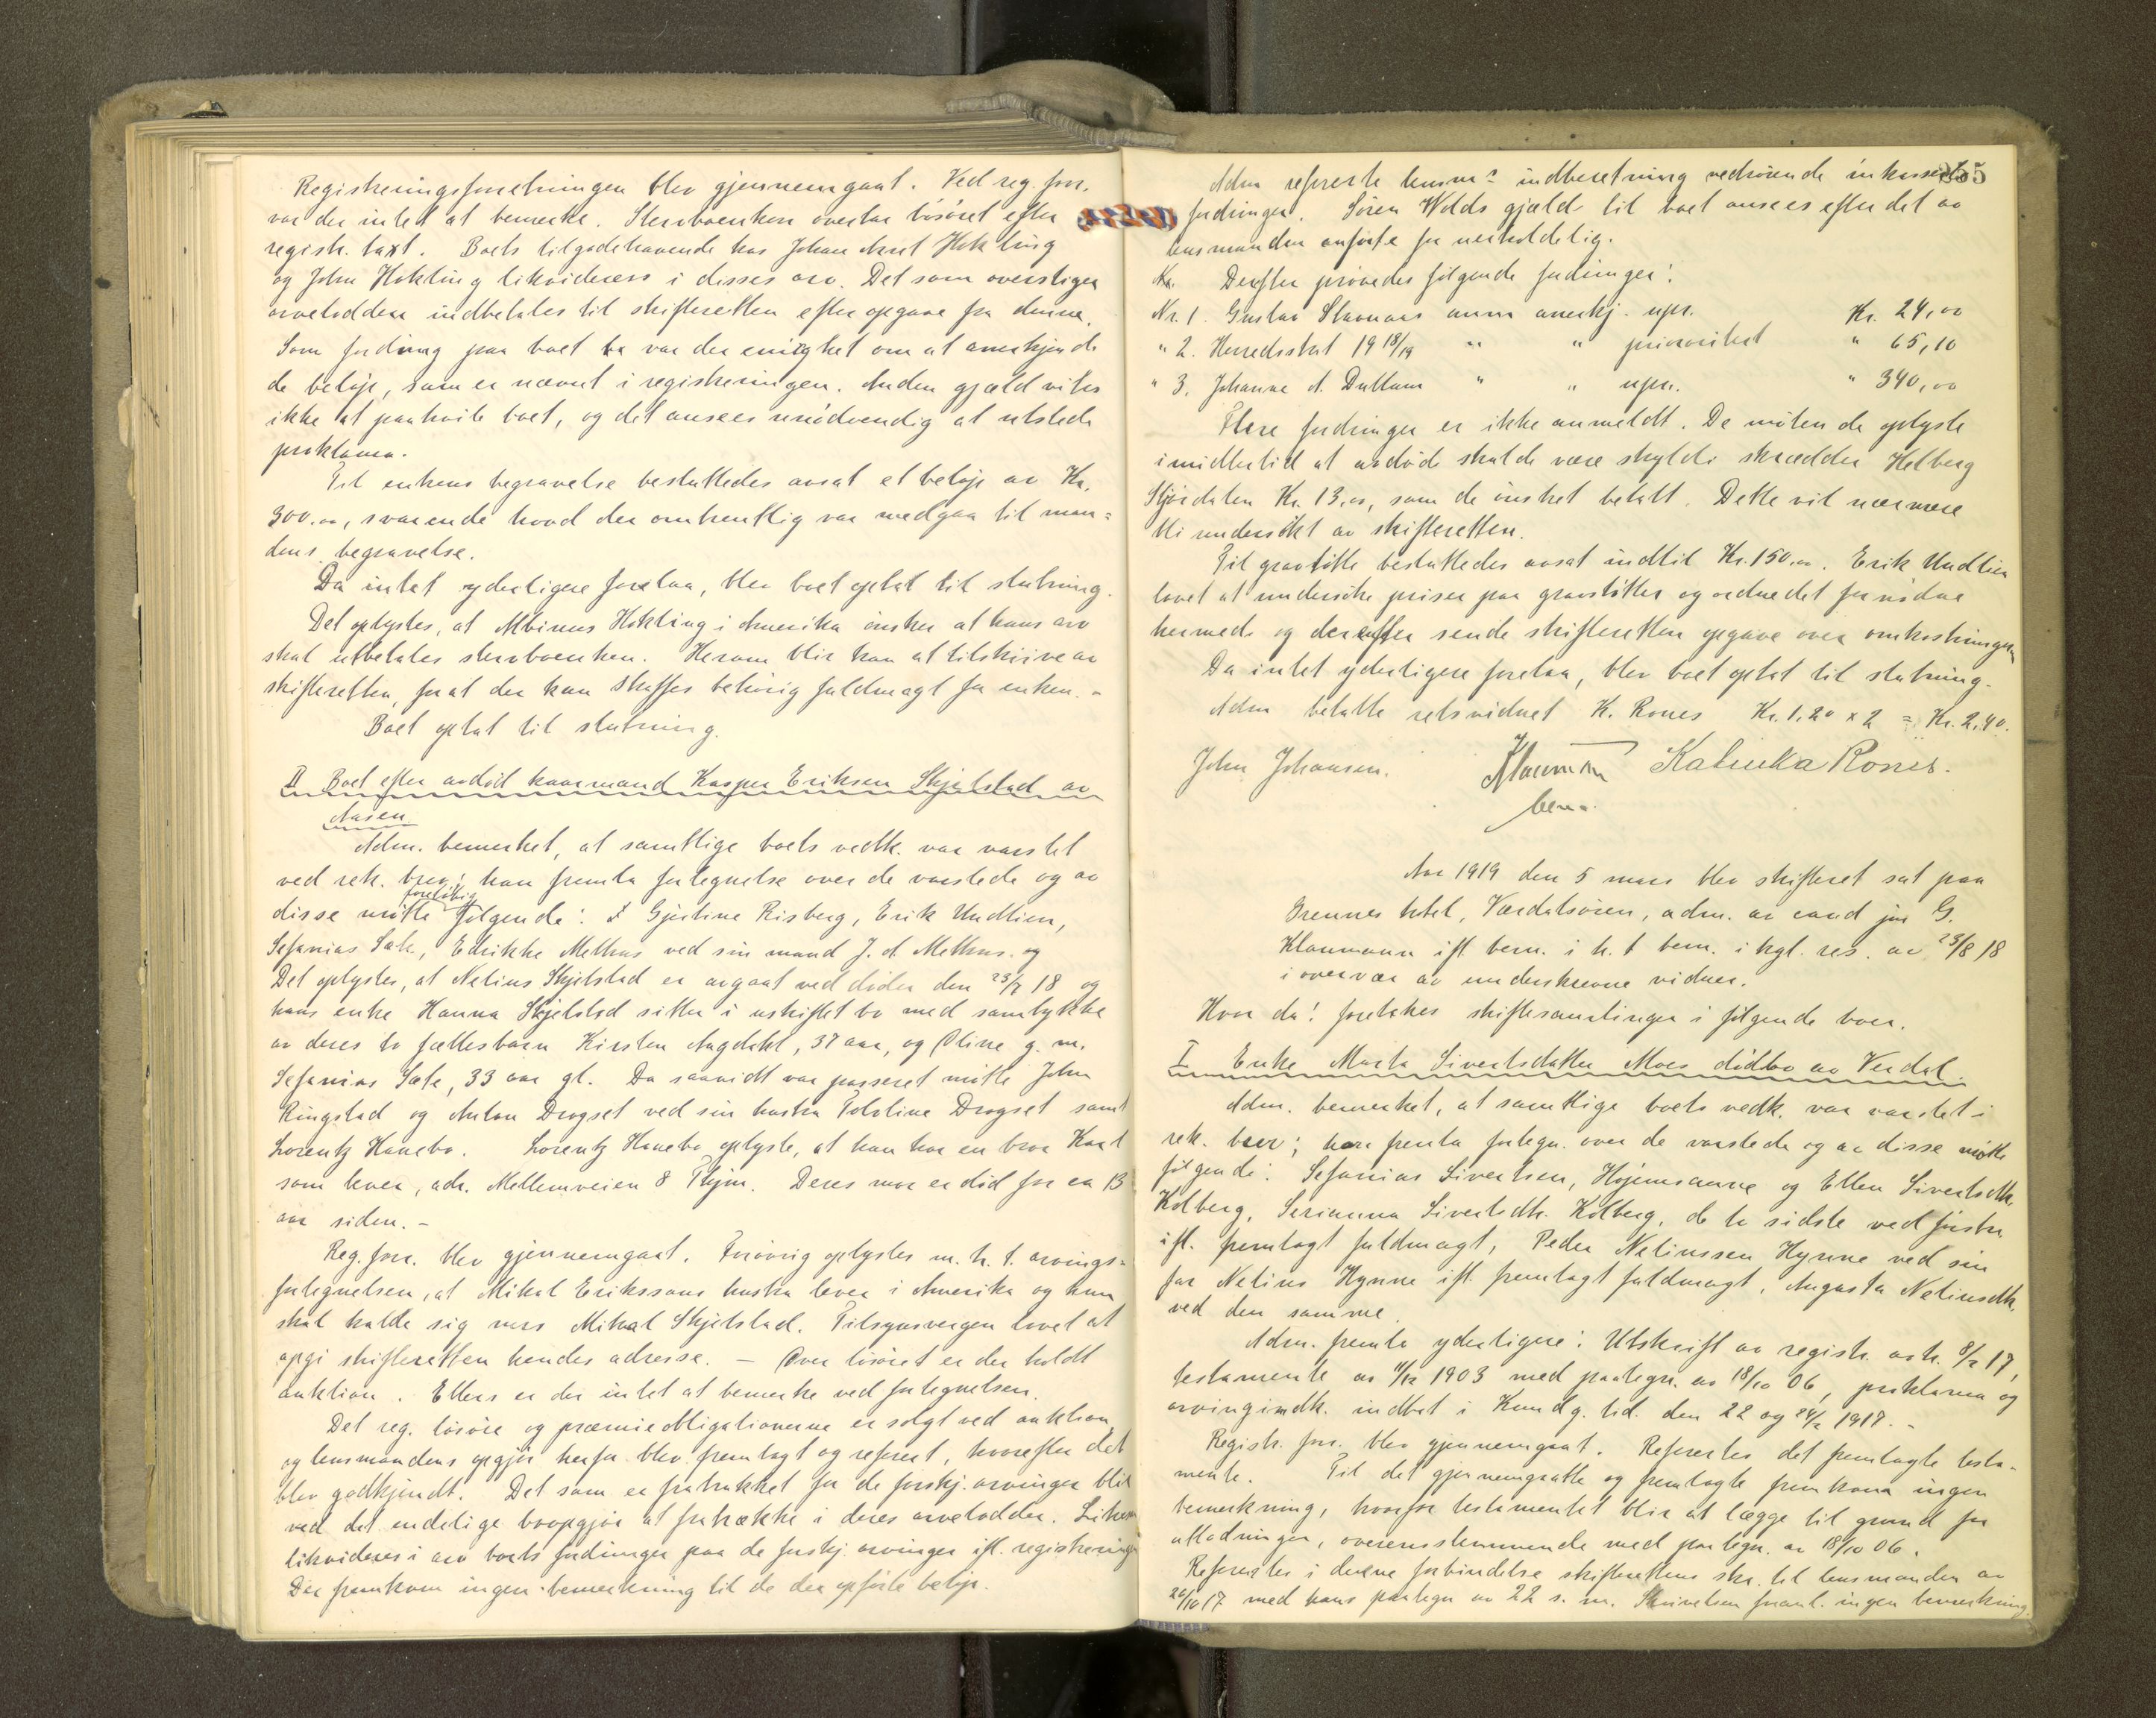 Registreringsforretningen blev gjennemgaat. Ved reg. forr.
var der intet at bemerke. Sterboenken overtar løsøret efter
registr. taxt. Boets tilgodehavende hos Johan Arnt Hokling
og John Hokling likvideres i disses arv. Det som overstiger
arveloddene indbetales til skifteretten efter opgave fra denne.
Som fordring paa boet var der enighet om at anerkjende
de beløp, som er nævnt i registreringen. Anden gjæld vites
ikke at paahvile boet, og det ansees unødvendig at utstede
proklama.
Til enkens begravelse besluttedes avsat et beløp av Kr.
300.00, svarende hvad der omtrentlig var medgaa til man=
dens begravelse.
Da intet yderligere forelaa, blev boet optat til slutning.
Det oplystes, at Albinus Hokling i Amerika ønsker at hans arv
skal utbetales sterboenken. Herom blir han at tilskrive av
skifteretten, forat der kan skaffes behørig fuldmagt for enken. -
Boet optat til slutning.
II Boet efter avdød kaarmand Kasper Eriksen Skjelstad av
Aasen.
Adm. bemerket, at samtlige boets vedk. var varslet
ved rek. brev; han fremla fortegnelse over de varslede og av
foreløbig
disse møtte følgende: Gjertine Risberg, Erik Undlien,
Sefanias Sæte, Edrikke Methus ved sin mand J. A. Methus. og
Det oplystes, at Nelius Skjelstad er avgaat ved døden den 23/7 18 og
hans enke Hanna Skjelstad sitter i uskiftet bo med samtykke
av deres to fællesbarn Kirsten Aagdahl, 37 aar, og Oline g. m.
Sefanias Sæte, 33 aar gl. Da saavidt var passeret møtte John
Ringstad og Anton Drogset ved sin hustru Tolline Drogset samt
Lorentz Hanebo. Lorentz Hanebo oplyste, at han har en bror Karl
som lever, adr. Mellemveien 8 Thjm. Deres mor er død for ca 13
aar siden. -
Reg. forr. blev gjennemgaat. Forøvrig oplystes m. h. t. arvings=
fortegnelsen, at Mikal Erikssons hustru lever i Amerika og hun
skal kalde sig mrs Mikal Skjelstad. Tilsynsvergen lovet at
opgi skifteretten hendes adresse. - Over løsøret er der holdt
auktion. Ellers er der intet at bemerke ved fortegnelsen.
Det reg. løsøre og præmieobligationerne er solgt ved auktion,
og lensmandens opgjør herfor blev fremlagt og referert, hvorefter det
blev godkjendt. Det som er fratrukket for de forskj. arvinger blir
ved det endelige boopgjør at fratrække i deres arvelodder. Likesaa
likvideres i arv boets fordringer paa de forskj. arvinger ifl. registreringen
Der fremkom ingen bemerkning til de der opførte beløp.
355
Adm refererte lensm. indberetning vedrørende inkasserte
fordringer. Søren Wolds gjæld til boet ansees efter det av
lensmanden anførte for uerholdelig.
Derefter prøvedes følgende fordringer:
Nr. 1. Gustav Stavnaas anm anerkj. upr. Kr. 24,00
" 2. Herredsskat 1918/19 " " prioritet " 65,10
" 3. Johanne A. Dullum " " upr. " 340,00
Flere fordringer er ikke anmeldt. De møtende oplyste
imidlertid at avdøde skulde være skyldi skrædder Helberg
Stjørdalen Kr. 13,00, som de ønsket betalt. Dette vil nærmere
bli undersøkt av skifteretten.
Til gravstøtte besluttedes avsat indtil Kr. 150,00. Erik Undlien
lovet at undersøke priser paa gravstøtter og ordne det fornødne
hermed og derefter sende skifteretten opgave over omkostningen
Da intet yderligere forelaa, blev boet optat til slutning.
Adm betalte retsvidnet K. Rones Kr. 1,20 x 2 = Kr. 2,40.
John Johansen. Klaumann Kalinka Rones.
bem.
Aar 1919 den 5 mars blev skifteret sat paa
Grennes hotel, Værdalsøren, adm. av cand jur G.
Klaumann ifl. bem. i h. t bem. i kgl. res. av 23/8 18
i overvær av underskrevne vidner.
Hvor da! foretokes skiftesamlinger i følgende boer.
I Enke Marta Sivertsdatter Moes dødsbo av Verdal.
Adm. bemerket, at samtlige boets vedk. var varslet i
rek. brev; han fremla fortegn. over de varslede og av disse møtte
følgende: Sefanias Sivertsen, Hojemsaune og Ellen Sivertsdtr.
Kolberg, Serianna Sivertsdtr. Kolberg, de to sidste ved første
ifl. fremlagt fuldmagt, Peder Neliussen Hynne ved sin
far Nelius Hynne ifl. fremlagt fuldmagt, Augusta Neliusdtr.
ved den samme.
Adm. fremla yderligere: Utskrift av registr. avh. 8/2 17,
testamente av 11/12 1903 med paategn. av 18/10 06, proklama og
arvingindk. indtat i Kundg. tid. den 22 og 24/2 1917. -
Registr. forr. blev gjennemgaat. Refertes det fremlagte testa-
mente. Til det gjennemgaatte og fremlagte fremkom ingen
bemerkning, hvorfor testamentet blir at lægge til grund for
utlodningen, overensstemmende med paategn. av 18/10 06.
Refertes i denne forbindelse skifterettens skr. til lensmanden av
20/10 17 med hans paategn av 22 s. m. Skrivelsen foranl. ingen bemerkning.